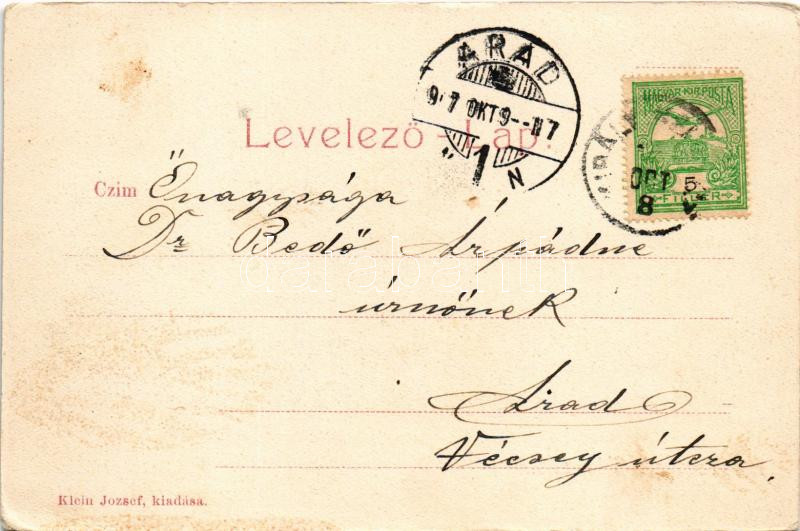 ARAD
907 OKT 9 - - N7
1
N
MAGYAR KIR. POSTA
OCT
8
5
FILLÉR
Levelező - Lap.
Czim Őnagysága
Dr Bedő Árpádne
úrnőnek
Arad
Vécsey útcza.
Klein Jozsef, kiadása.
darabanth